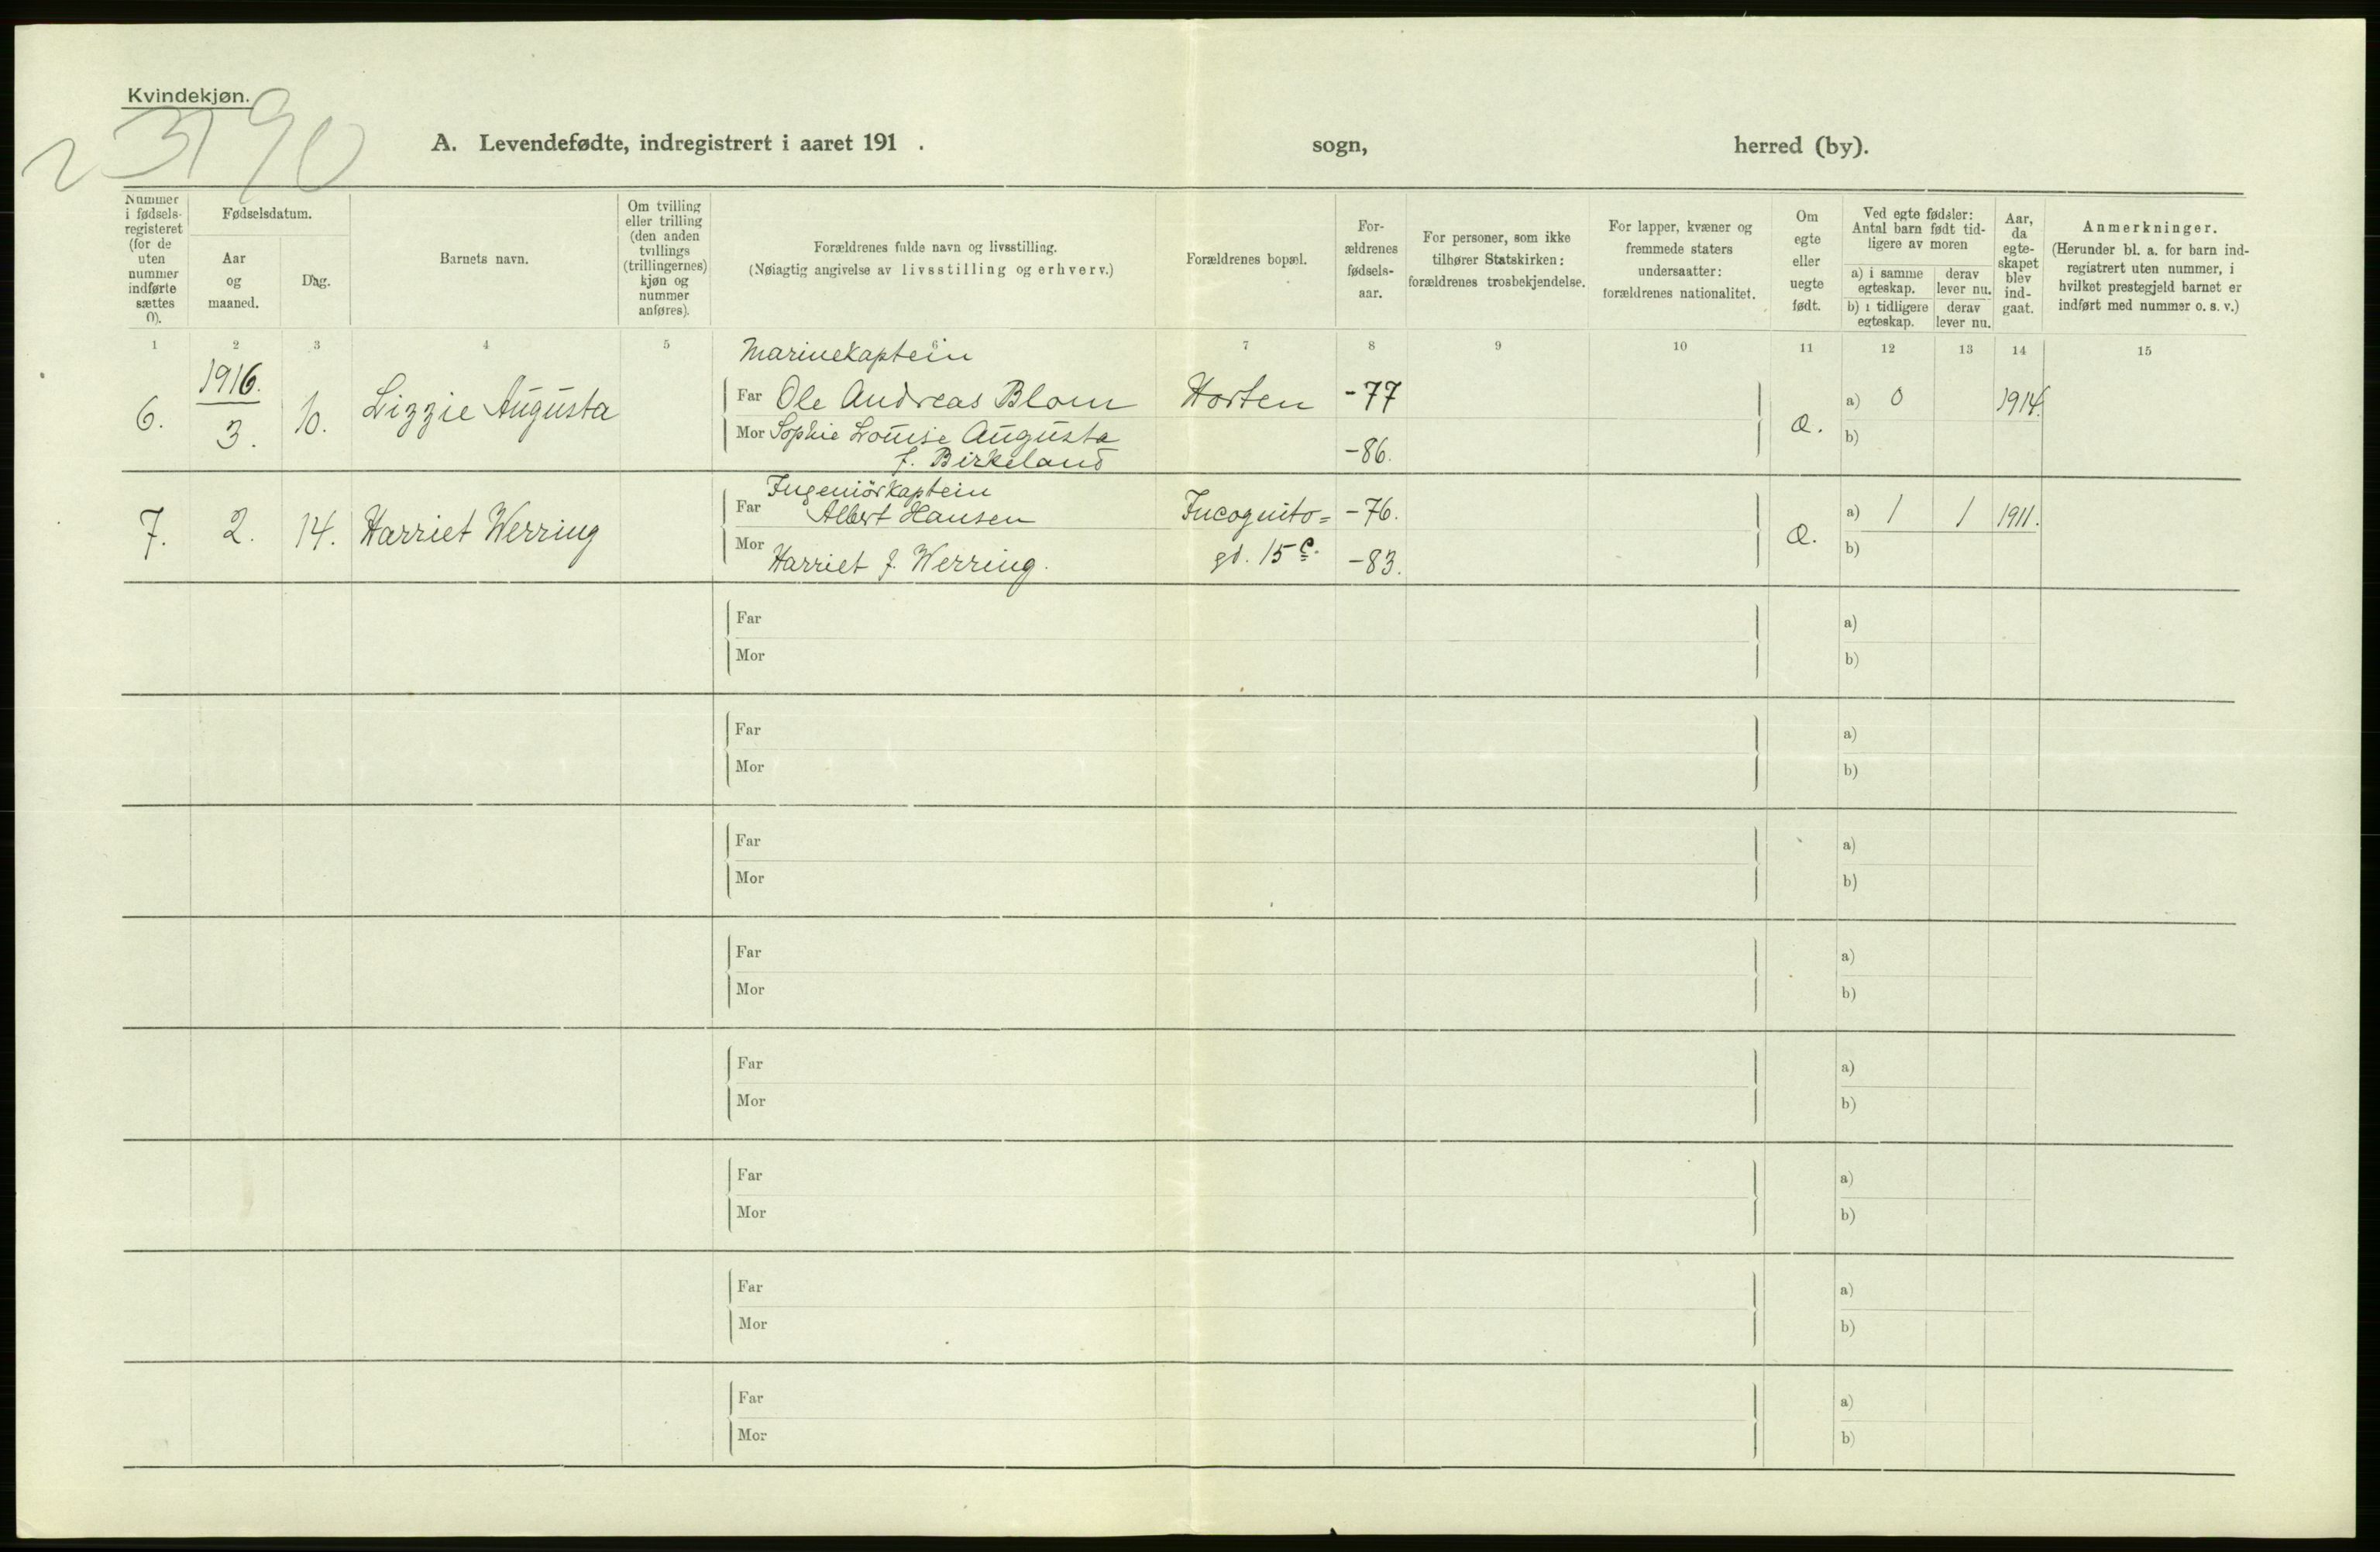 Kvindekjøn.
A. Levendefødte, indregistrert i aaret 191 . sogn, herred (by).
Nummer i fødsels-registeret (for de uten nummer indførte sættes 0).
Fødselsdatum.
Aar og maaned.
Dag.
Barnets navn.
Om tvilling eller trilling (den anden tvillings (trillingernes) kjøn og nummer anføres).
Forældrenes fulde navn og livsstilling.
(Nøiagtig angivelse av livsstilling og erhverv.)
Forældrenes bopæl.
For-ældrenes fødsels-aar.
For personer, som ikke tilhører Statskirken: forældrenes trosbekjendelse.
For lapper, kvæner og fremmede staters undersaatter: forældrenes nationalitet.
Om egte eller uegte født.
Ved egte fødsler: Antal barn født tid-ligere av moren
a) i samme egteskap.
derav lever nu.
b) i tidligere egteskap.
derav lever nu.
Aar, da egte-skapet blev ind-gaat.
Anmerkninger.
(Herunder bl. a. for barn ind-registrert uten nummer, i hvilket prestegjeld barnet er indført med nummer o. s. v.)
1 2 3 4 5 6 7 8 9 10 11 12 13 14 15
Marinekaptein
1916.
6. 3. 10. Lizzie Augusta Far Ole Andreas Blom Horten -77 a) 0 1914.
Mor Sophie Louise Augusta
f. Birkeland -86. b)
Ingeniörkaptein
7. 2. 14. Harriet Werring Far Albert Hansen Incognito= -76. a) 1 1 1911.
Mor Harriet f. Werring. gt. 15 c. -83. b)
Far a)
Mor b)
Far a)
Mor b)
Far a)
Mor b)
Far a)
Mor b)
Far a)
Mor b)
Far a)
Mor b)
Far a)
Mor b)
Far a)
Mor b)